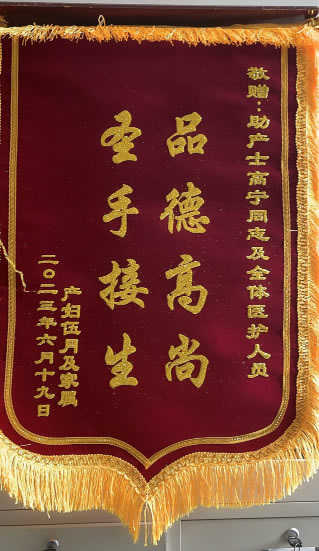 敬赠：助产士高宁同志及全体医护人员
品德高尚
圣手接生
产妇伍月及家属
二〇二三年六月十九日